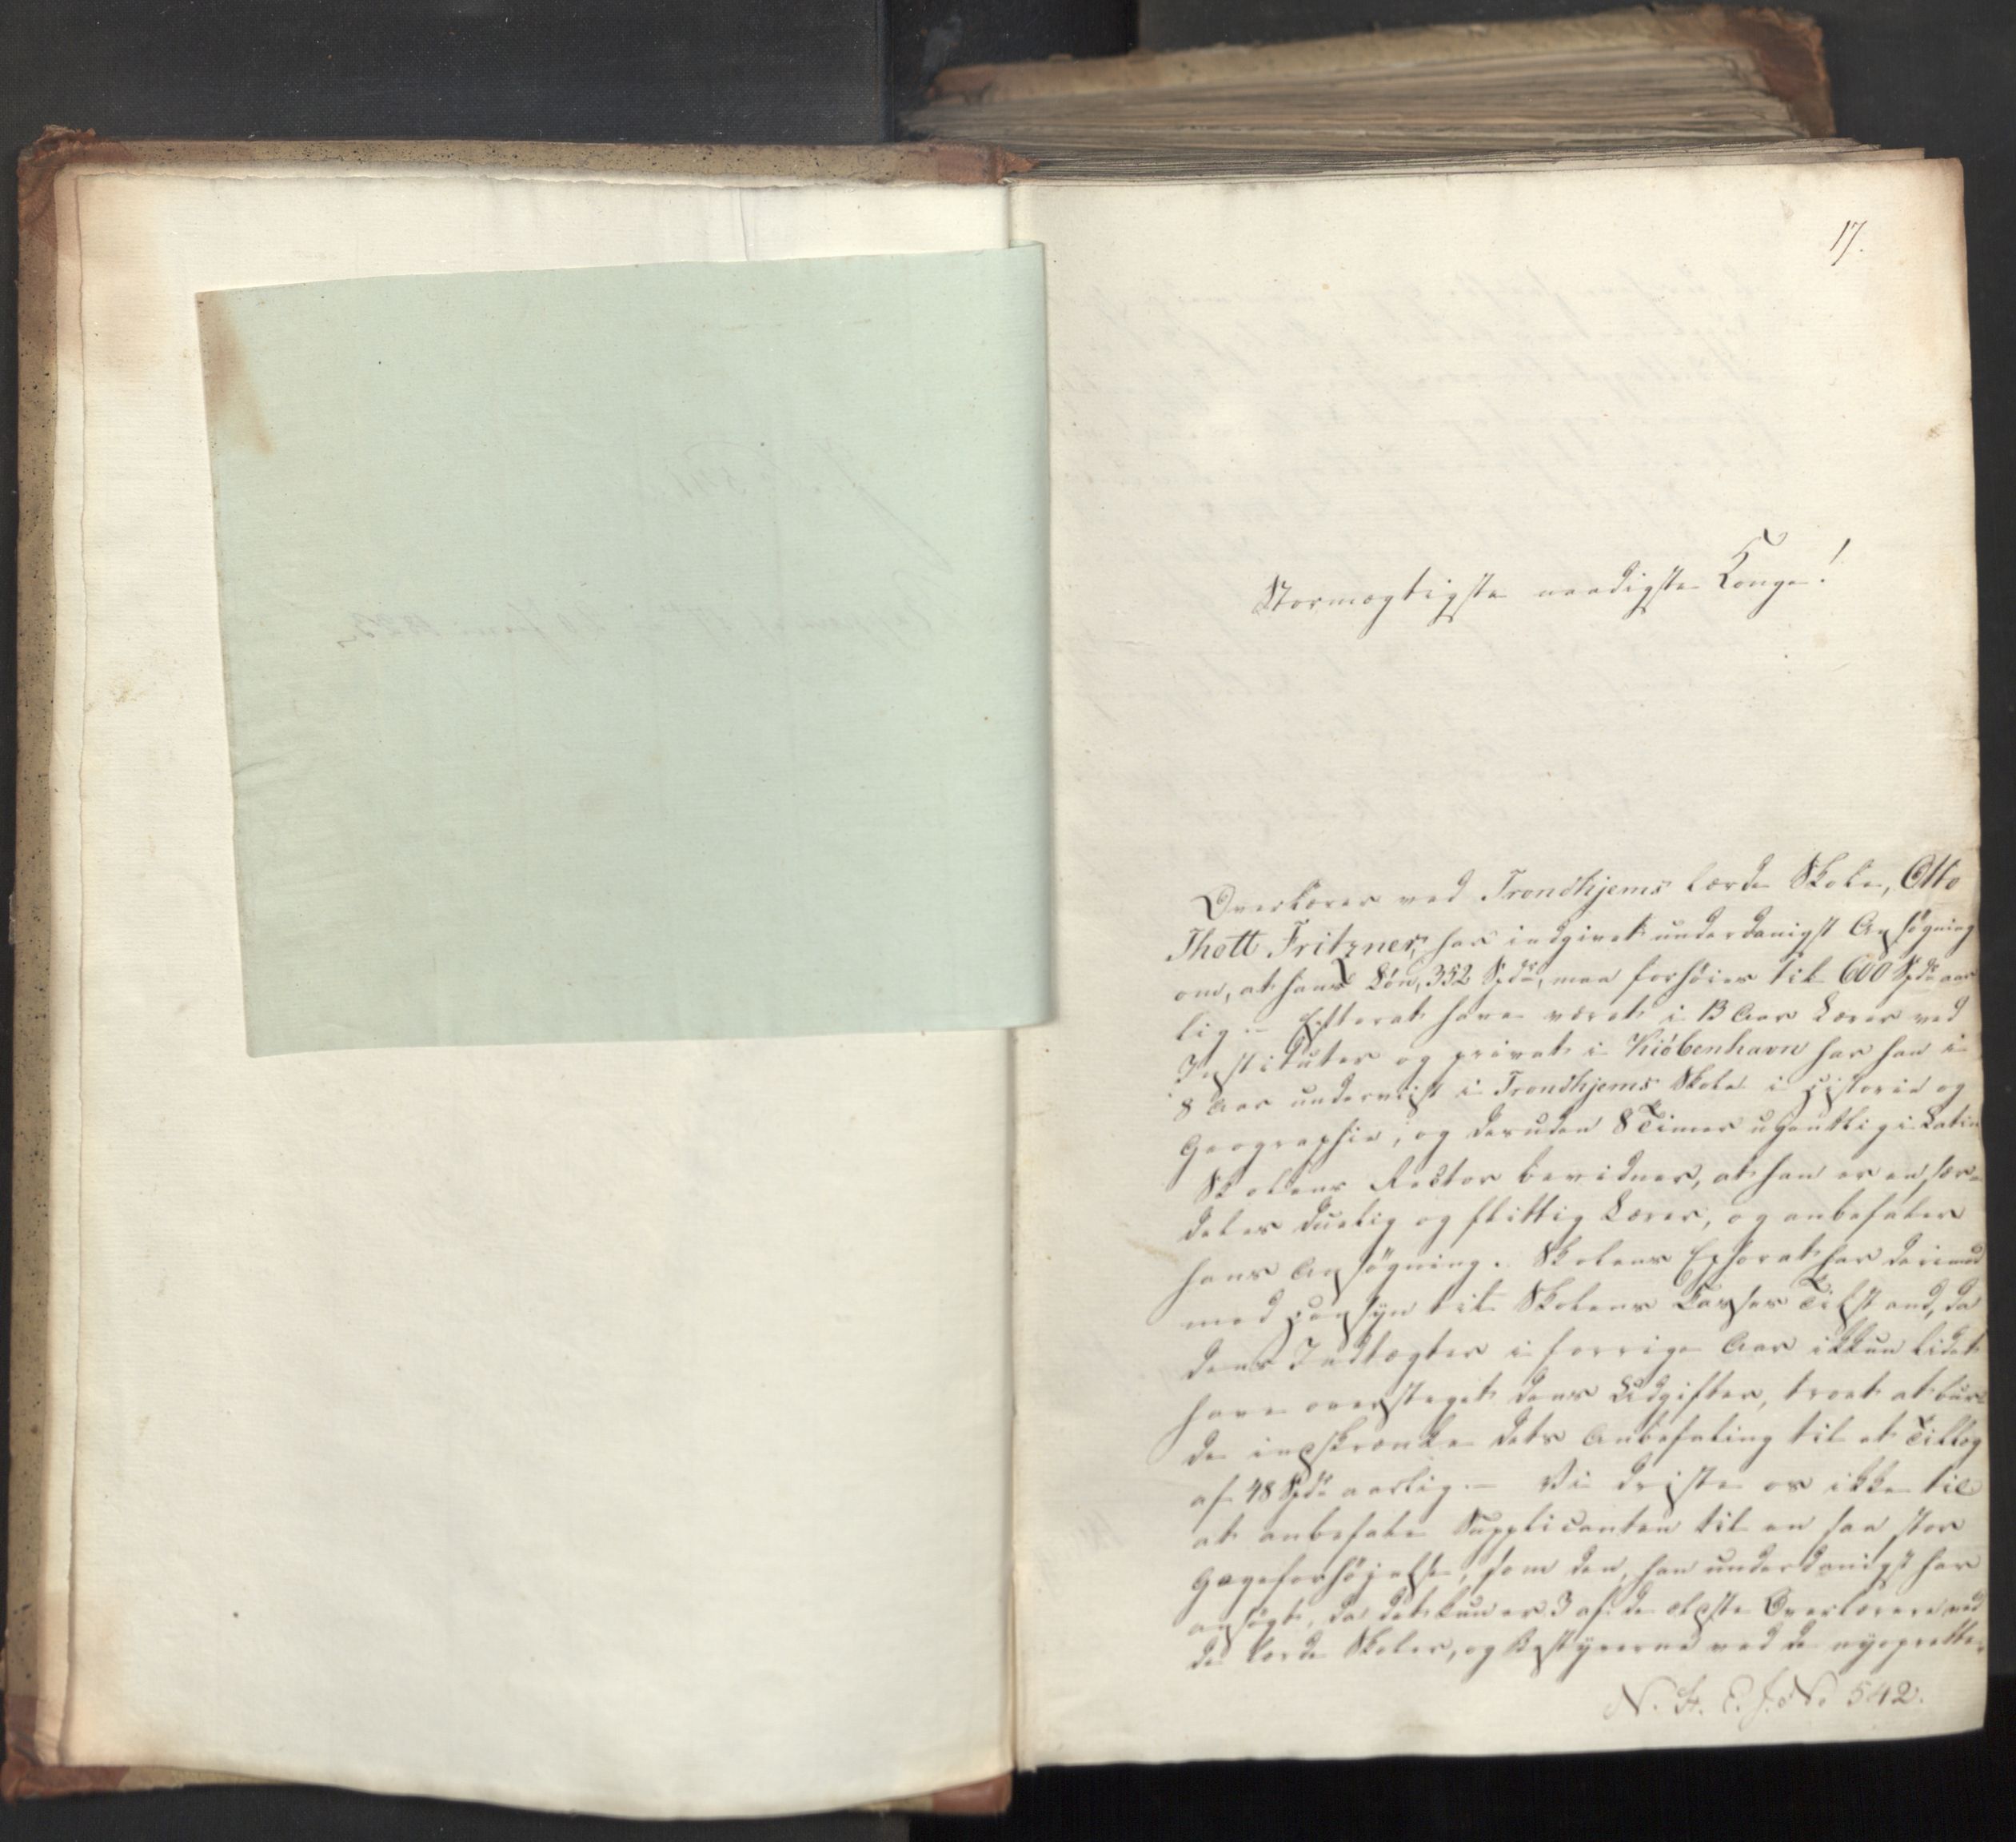 17.
Stormægtigste naadigste Konge!
Overlærer ved Trondhjems lærde Skole, Otto
Thott Fritzner, har indgivet underdanigst Ansøgning
om, at hans Løn, 352 Spdr, maa forhøies til 600 Spdr aar-
lig. – Efterat have været i 13 Aar Lærer ved
Institutter og privat i Kiöbenhavn har han i
8 Aar underviist i Trondhjems Skole i Historie og
Geographie, og desuden 8 Timer ugentlig i Latin
Skolens Rector bevidner, at han er en sær-
deles duelig og flittig Lærer, og anbefaler
hans Ansøgning. Skolens Ephorat har derimod
med Hensyn til Skolens Casses Tilstand, da
dens Indtægter i forrige Aar ikkun lidet
have oversteget dens Udgifter, troet at bur-
de inskrænke dets Anbefaling til et Tillæg
af 48 Spdr aarlig. – Vi driste os ikke til
at anbefale Supplicanten til en saa stor
Gageforhøjelse, som den, han underdanigst har
ansøgt, da det kun er 3 af de ælste Overlærere ved
de lærde Skoler, og Bestyrerne ved de nyoprette-
N. St. E. J. No 542.